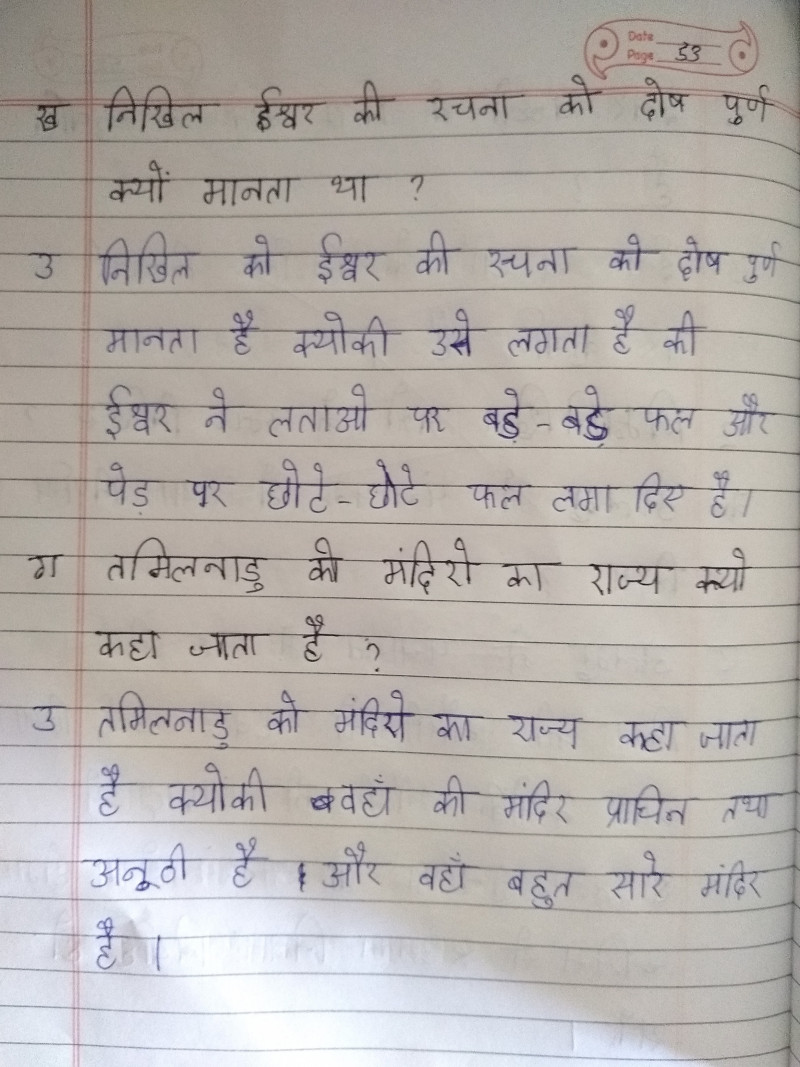 Date
Page 53
ख निखिल ईश्वर की रचना को दोष पुर्ण
क्यों मानता था ?
उ निखिल को ईश्वर की रचना को दोष पुर्ण
मानता है क्योकी उसे लगता है की
ईश्वर ने लताओ पर बड़े-बड़े फल और
पेड़ पर छोटे-छोटे फल लगा दिए है।
ग तमिलनाडु को मंदिरो का राज्य क्यो
कहा जाता है ?
उ तमिलनाडु को मंदिरो का राज्य कहा जाता
है क्योकी वहाँ की मंदिर प्राचिन तथा
अनूठी है । और वहाँ बहुत सारे मंदिर
है ।